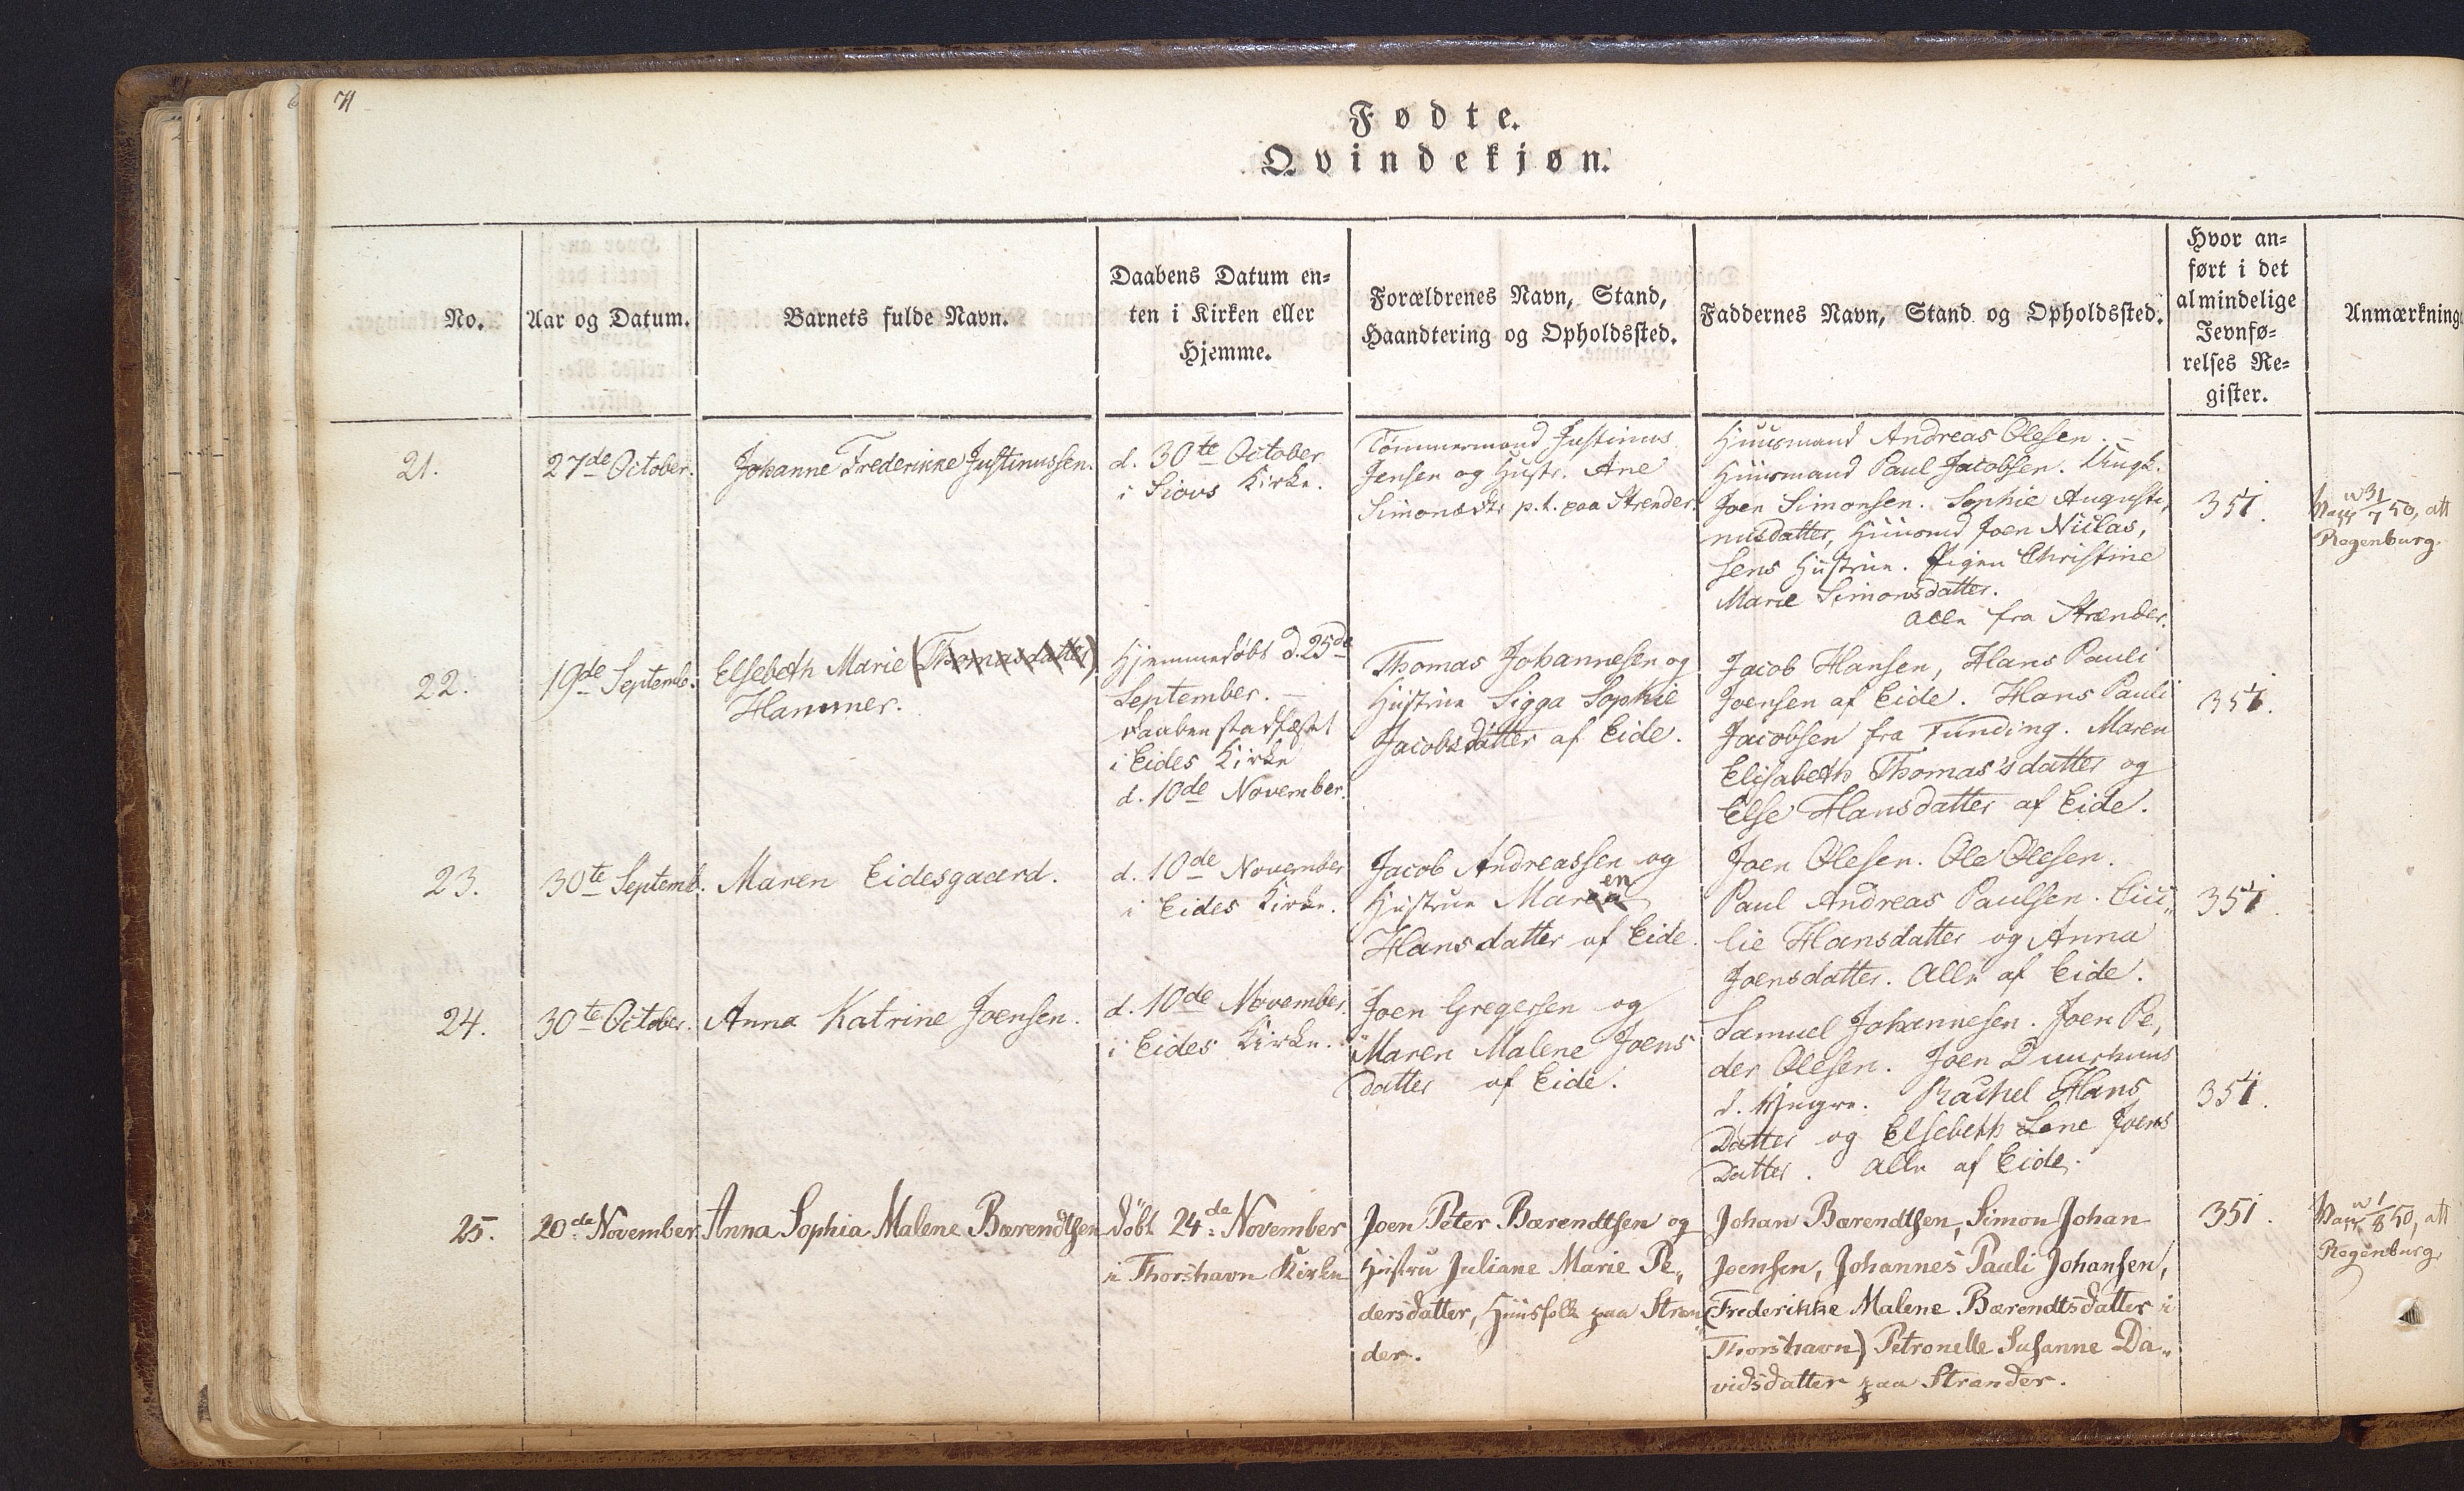 71
Fødte.
Qvindekjøn.
No.
Aar og Datum.
Barnets fulde Navn.
Daabens Datum en=
ten i Kirken eller
Hjemme.
Forældrenes Navn, Stand,
Haandtering og Opholdssted.
Faddernes Navn, Stand og Opholdssted.
Hvor an=
ført i det
almindelige
Jevnfø=
relses Re=
gister.
Anmærkning
21.
27de October.
Johanne Frederikke Justinussen.
d. 30te October
i Siovs Kirke.
Tömmermand Justinus
Jensen og Hustr. Ane
Simonsdtr p.t. paa Strender.
Huusmand Andreas Olesen.
Huusmand Paul Jacobsen. Ungk.
Joen Simonsen. Sophie Augusti,
nusdatter, Huusmd Joen Niclas,
sens Hustrue. Pigen Christine
Marie Simonsdatter.
Alle fra Strænder.
351.
Vacc 31/7 50, att
Regenburg.
22.
19de Septemb.
Elsebeth Marie (Thomasdatter)
Hammer.
Hjemmedöbt d. 25de
September. —
Daaben stadfæstet
i Eides Kirke
d. 10de November.
Thomas Johannesen og
Hustrue Sigga Sophie
Jacobsdatter af Eide.
Jacob Hansen, Hans Pauli
Joensen af Eide. Hans Pauli
Jacobsen fra Funding. Maren
Elisabeth Thomas'sdatter og
Else Hansdatter af Eide.
351.
23.
30te Septemb.
Maren Eidesgaard.
d. 10de November
i Eides Kirke.
Jacob Andreassen og
Hustrue Maren
Hansdatter af Eide.
Joen Olesen. Ole Olesen.
Paul Andreas Paulsen. Cici„
lie Hansdatter og Anna
Joensdatter. Alle af Eide.
351.
24.
30te October.
Anna Katrine Joensen.
d. 10de November.
i Eides Kirke.
Joen Gregersen og
Maren Malene Joens
datter af Eide.
Samuel Johannesen. Joen Pe,
der Olesen. Joen Duurhuus
d. Yngre. Rachel Hans
Datter og Elsebeth Lene Joens
Datter. Alle af Eide.
351.
25.
20de November.
Anna Sophia Malene Bærendtsen
döbt 24de November
i Thorshavn Kirke
Joen Peter Bærendtsen og
Hustru Juliane Marie Pe„
dersdatter, Huusfolk paa Stræn„
der.
Johan Bærendtsen, Simon Johan
Joensen, Johannes Pauli Johansen,
(Frederikke Malene Bærendtsdatter i
Thorshavn) Petronelle Susanne Da„
vidsdatter paa Strander.
351.
Vacc 1/8 50, att
Regenburg.